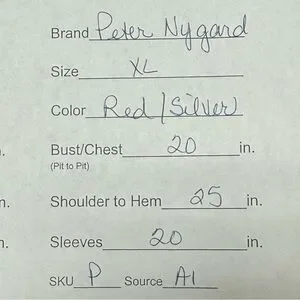 Brand Peter Nygard
Size XL
Color Red/Silver
. Bust/Chest 20 in.
(Pit to Pit)
n. Shoulder to Hem 25 in.
n. Sleeves 20 in.
SKU P Source A1